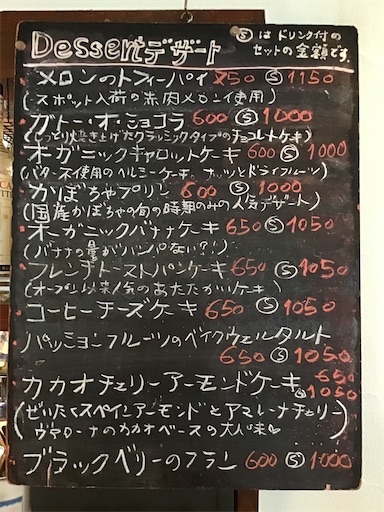 Dessert デザート
Ⓢ は ドリンク付の
セットの金額です。
メロンのトフィーパイ 750 Ⓢ 1150
(スポット入荷の赤肉メロン使用)
ガトー・オ・ショコラ 600 Ⓢ 1000
(しっとり焼き上げたクラシックタイプのチョコレートケーキ)
オーガニックキャロットケーキ 600 Ⓢ 1000
(バター不使用のヘルシーケーキ ナッツとドライフルーツ)
かぼちゃプリン 600 Ⓢ 1000
(国産かぼちゃの旬の時期のみの人気デザート)
オーガニックバナナケーキ 650 Ⓢ 1050
(バナナの量がハンパない?!)
フレンチトーストパンケーキ 650 Ⓢ 1050
(オープン以来人気のあたたかいケーキ)
コーヒーチーズケーキ 650 Ⓢ 1050
パッションフルーツのベイクウェルタルト
650 Ⓢ 1050
カカオチェリーアーモンドケーキ 650
Ⓢ 1050
(ぜいたくスペインアーモンドとアマレーナチェリー
ヴァローナのカカオベースの大人味♡)
ブラックベリーのフラン 600 Ⓢ 1000